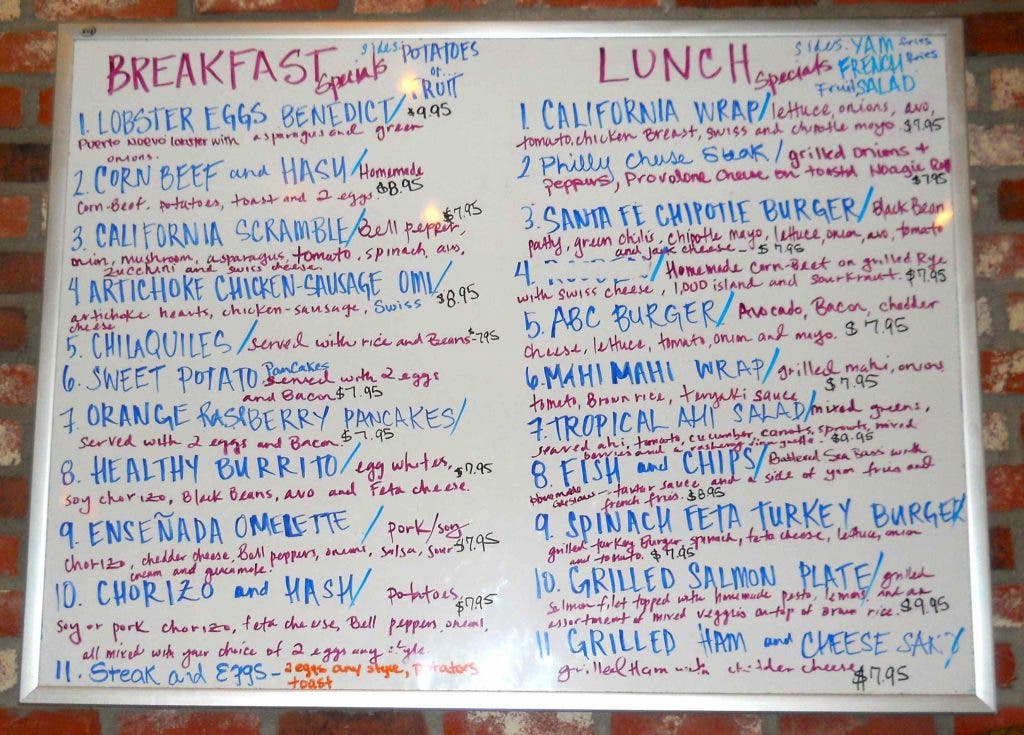 BREAKFAST Specials
sides. POTATOES
or
FRUIT
1. LOBSTER EGGS BENEDICT/ $9.95
Puerto Nuevo lobster with asparagus and green
onions.
2. CORN BEEF and HASH/Homemade
Corn-Beef. potatoes, toast and 2 eggs. $8.95
3. CALIFORNIA SCRAMBLE/Bell pepper, $7.95
onion, mushroom, asparagus, tomato, spinach, avo,
zucchini and swiss cheese.
4 ARTICHOKE CHICKEN-SAUSAGE OML/
artichoke hearts, chicken-sausage, Swiss $8.95
cheese
5. CHILAQUILES/served with rice and Beans-$7.95
6. SWEET POTATO Pancakes
served with 2 eggs
and Bacon $7.95
7. ORANGE RASBERRY PANCAKES/
Served with 2 eggs and Bacon. $7.95
8. HEALTHY BURRITO/egg whites, $7.95
soy chorizo, Black Beans, avo and Feta cheese.
9. ENSEÑADA OMELETTE / pork/soy
chorizo, chedder cheese, Bell peppers, onions, salsa, sour $7.95
cream and guacamole.
10. CHORIZO and HASH/ potatoes,
$7.95
soy or pork chorizo, feta cheese, Bell peppers, onions,
all mixed with your choice of 2 eggs any style.
11. Steak and Eggs - 2 eggs any style, Potatoes
toast
LUNCH Specials
sides. YAM fries
FRENCH fries
Fruit SALAD
1. CALIFORNIA WRAP/lettuce, onions, avo,
tomato, chicken Breast, swiss and chipotle mayo. $7.95
2 Philly Cheese Steak/grilled onions +
peppers, Provolone Cheese on toasted Hoagie Roll
$7.95
3. SANTA FE CHIPOTLE BURGER/Black Bean
patty, green chilis, chipotle mayo, lettuce, onion, avo, tomato
and jack cheese. $7.95
4. /Homemade Corn-Beef on grilled Rye
with swiss cheese, 1,000 island and sourkraut. $7.95
5. ABC BURGER/Avocado, Bacon, chedder
cheese, lettuce, tomato, onion and mayo. $7.95
6. MAHI MAHI WRAP/grilled mahi, onions
tomato, Brown rice, teriyaki sauce $7.95
7. TROPICAL AHI SALAD/mixed greens,
seared ahi, tomato, cucumber, carrots, sprouts, mixed
berries and a rasberry vinegrette. $9.95
8. FISH and CHIPS/Battered Sea Bass with
homemade coleslaw tartar sauce and a side of yam fries and
french fries. $8.95
9. SPINACH FETA TURKEY BURGER/
grilled turkey Burger, spinach, feta cheese, lettuce, onion
and tomato. $7.95
10. GRILLED SALMON PLATE/grilled
salmon filet topped with homemade pesto, lemons and an
assortment of mixed veggies on top of Brown rice. $9.95
11 GRILLED HAM and CHEESE
grilled Ham with chedder cheese $7.95